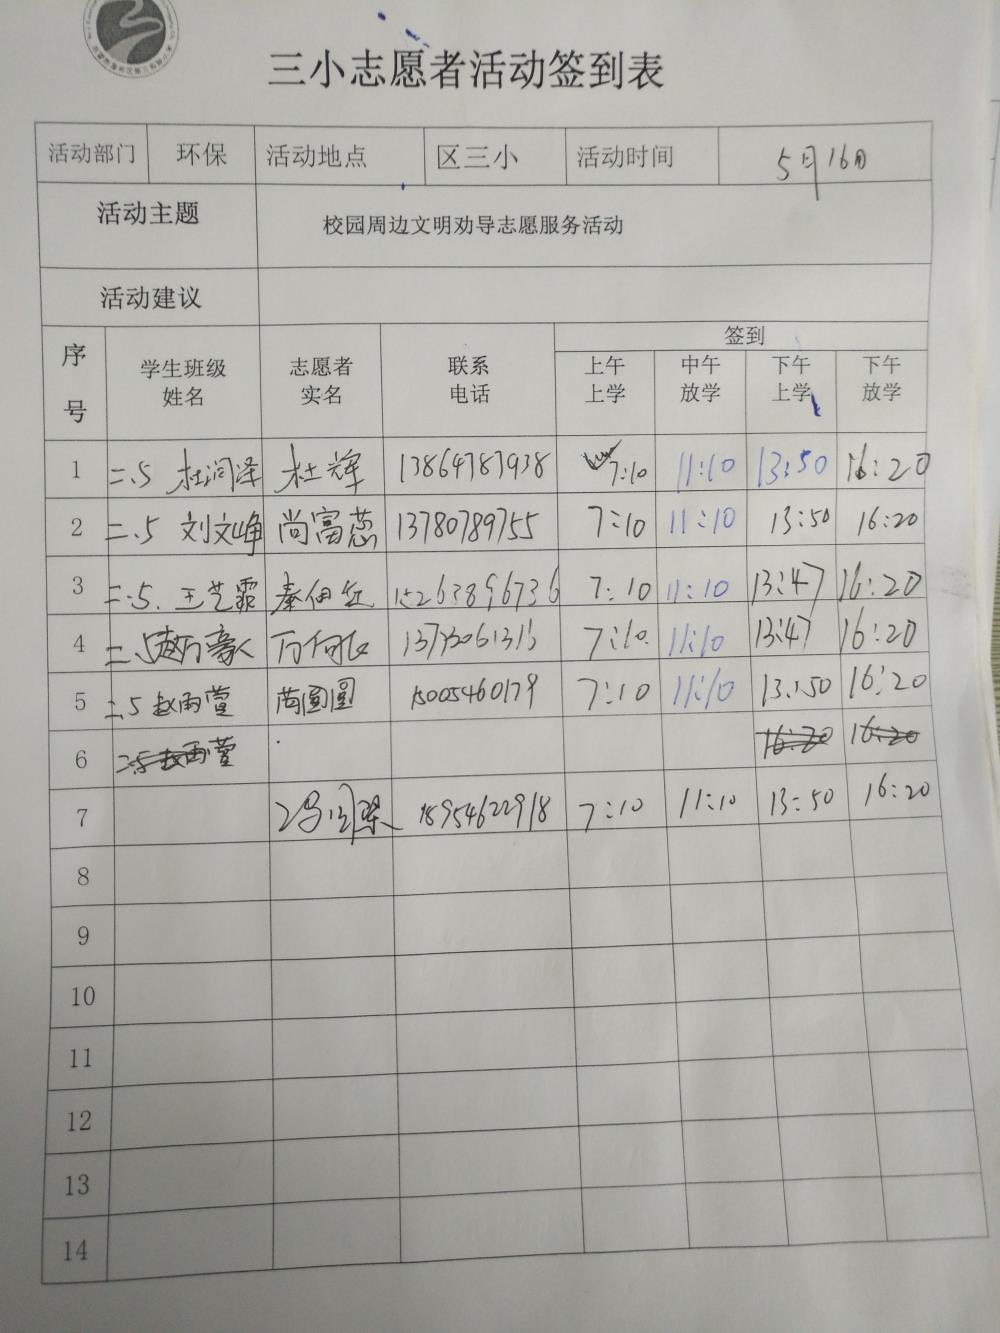 三小志愿者活动签到表
活动部门 环保 活动地点 区三小 活动时间 5月16日
活动主题 校园周边文明劝导志愿服务活动
活动建议
序号 学生班级姓名 志愿者实名 联系电话 签到
上午上学 中午放学 下午上学 下午放学
1 二.5 杜润泽 杜辉 13864787938 7:10 11:10 13:50 16:20
2 二.5 刘文峥 尚富蕊 13780789755 7:10 11:10 13:50 16:20
3 二.5. 王艺霏 秦 15263896736 7:10 11:10 13:47 16:20
4 二.5 赵万豪 万 7:10. 11:10 13:47 16:20
5 二.5 赵雨萱 蔄圆圆 15005460179 7:10 11:10 13:50 16:20
6 二.5 赵雨萱 16:20 16:20
7 冯 18954622918 7:10 11:10 13:50 16:20
8
9
10
11
12
13
14